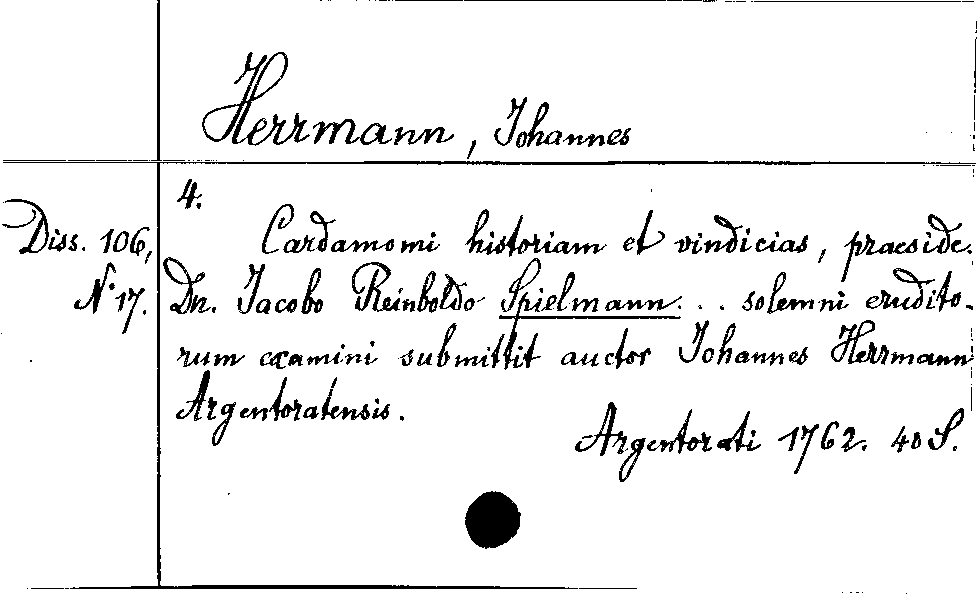 Herrmann, Johannes
4.
Diss. 106,
N° 17.
Cardamomi historiam et vindicias, praeside
Dn. Jacobo Reinboldo Spielmann . . . solemni erudito-
rum examini submittit auctor Johannes Herrmann
Argentoratensis.
Argentorati 1762. 40 S.